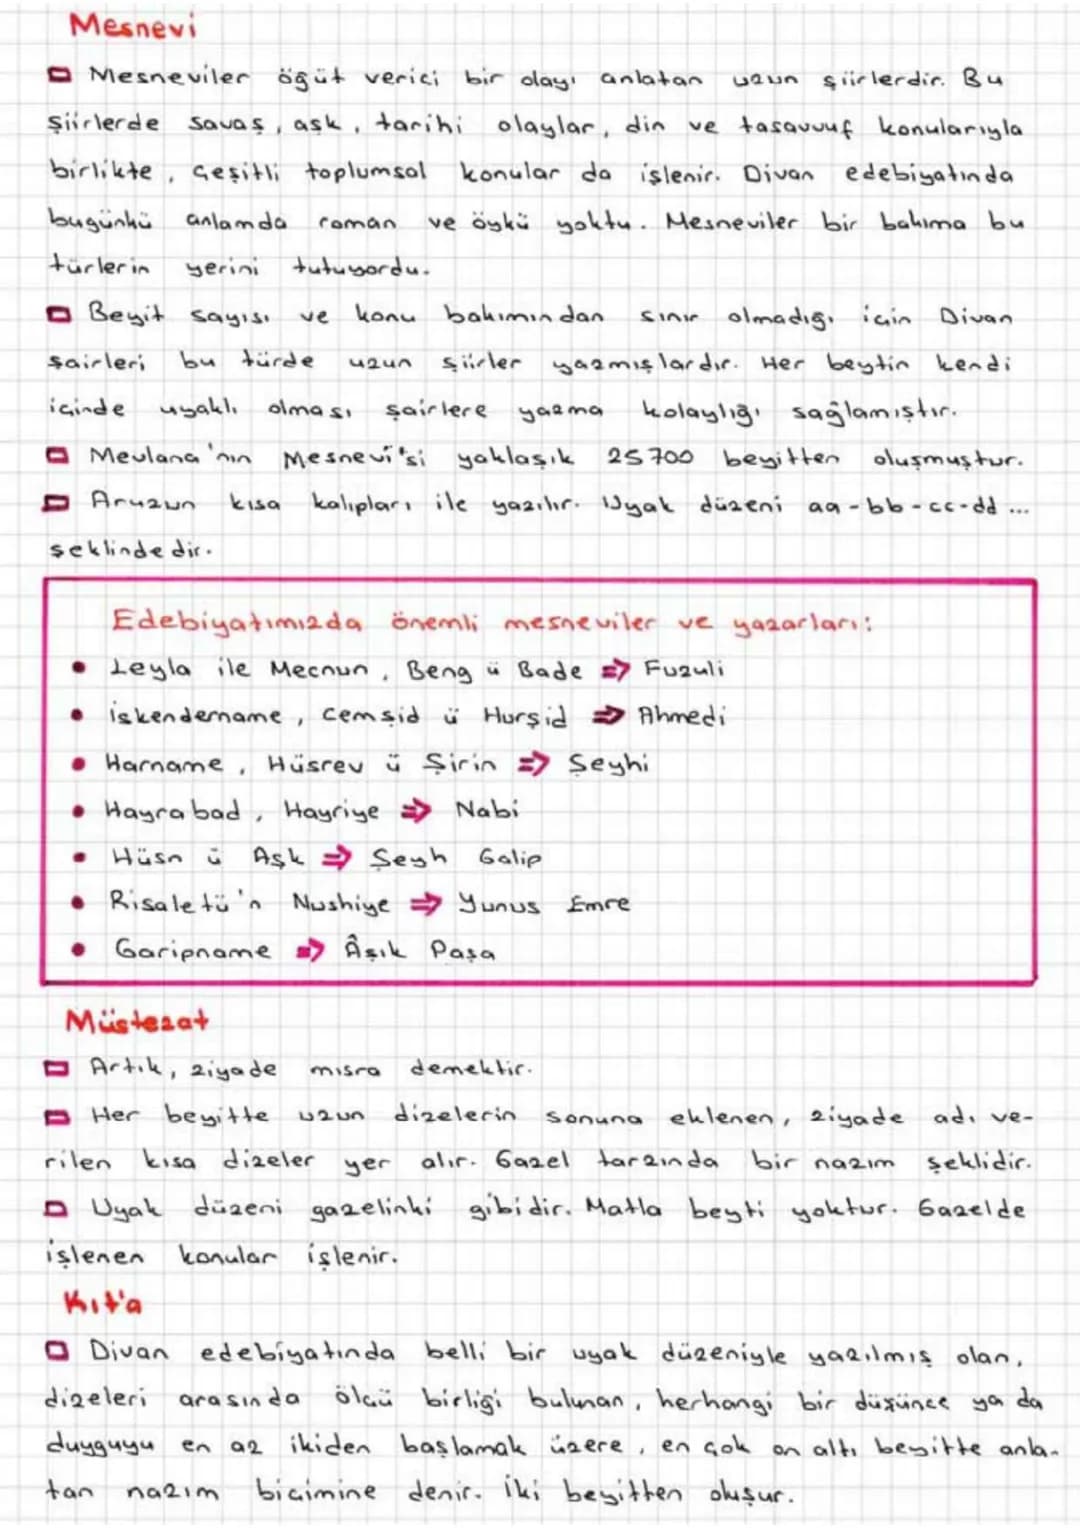 Mesnevi
Mesneviler öğüt verici bir olayı anlatan uzun şiirlerdir. Bu
şiirlerde savaş, aşk, tarihi olaylar, din ve tasavvuf konularıyla
birlikte, çeşitli toplumsal konular da işlenir. Divan edebiyatında
bugünkü anlamda roman ve öykü yoktu. Mesneviler bir bakıma bu
türlerin yerini tutuyordu.
Beyit sayısı ve konu bakımından sınır olmadığı için Divan
şairleri bu türde uzun şiirler yazmışlardır. Her beytin kendi
içinde uyaklı olması şairlere yazma kolaylığı sağlamıştır.
Mevlana'nın Mesnevi'si yaklaşık 25700 beyitten oluşmuştur.
Aruzun kısa kalıpları ile yazılır. Uyak düzeni aa-bb-cc-dd ...
şeklindedir.
Edebiyatımızda önemli mesneviler ve yazarları:
• Leyla ile Mecnun, Beng ü Bade => Fuzuli
• İskendername, Cemşid ü Hurşid => Ahmedi
• Harname, Hüsrev ü Şirin => Şeyhi
• Hayrabad, Hayriye => Nabi
• Hüsn ü Aşk => Şeyh Galip
• Risaletü'n Nushiye => Yunus Emre
• Garipname => Âşık Paşa
Müstezat
Artık, ziyade mısra demektir.
Her beyitte uzun dizelerin sonuna eklenen, ziyade adı ve-
rilen kısa dizeler yer alır. Gazel tarzında bir nazım şeklidir.
Uyak düzeni gazelinki gibidir. Matla beyti yoktur. Gazelde
işlenen konular işlenir.
Kıt'a
Divan edebiyatında belli bir uyak düzeniyle yazılmış olan,
dizeleri arasında ölçü birliği bulunan, herhangi bir düşünce ya da
duyguyu en az ikiden başlamak üzere, en çok on altı beyitte anla-
tan nazım biçimine denir. İki beyitten oluşur.